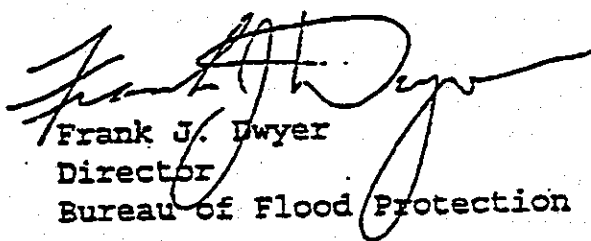 Frank J. Dwyer
Frank J. Dwyer
Director
Bureau of Flood Protection